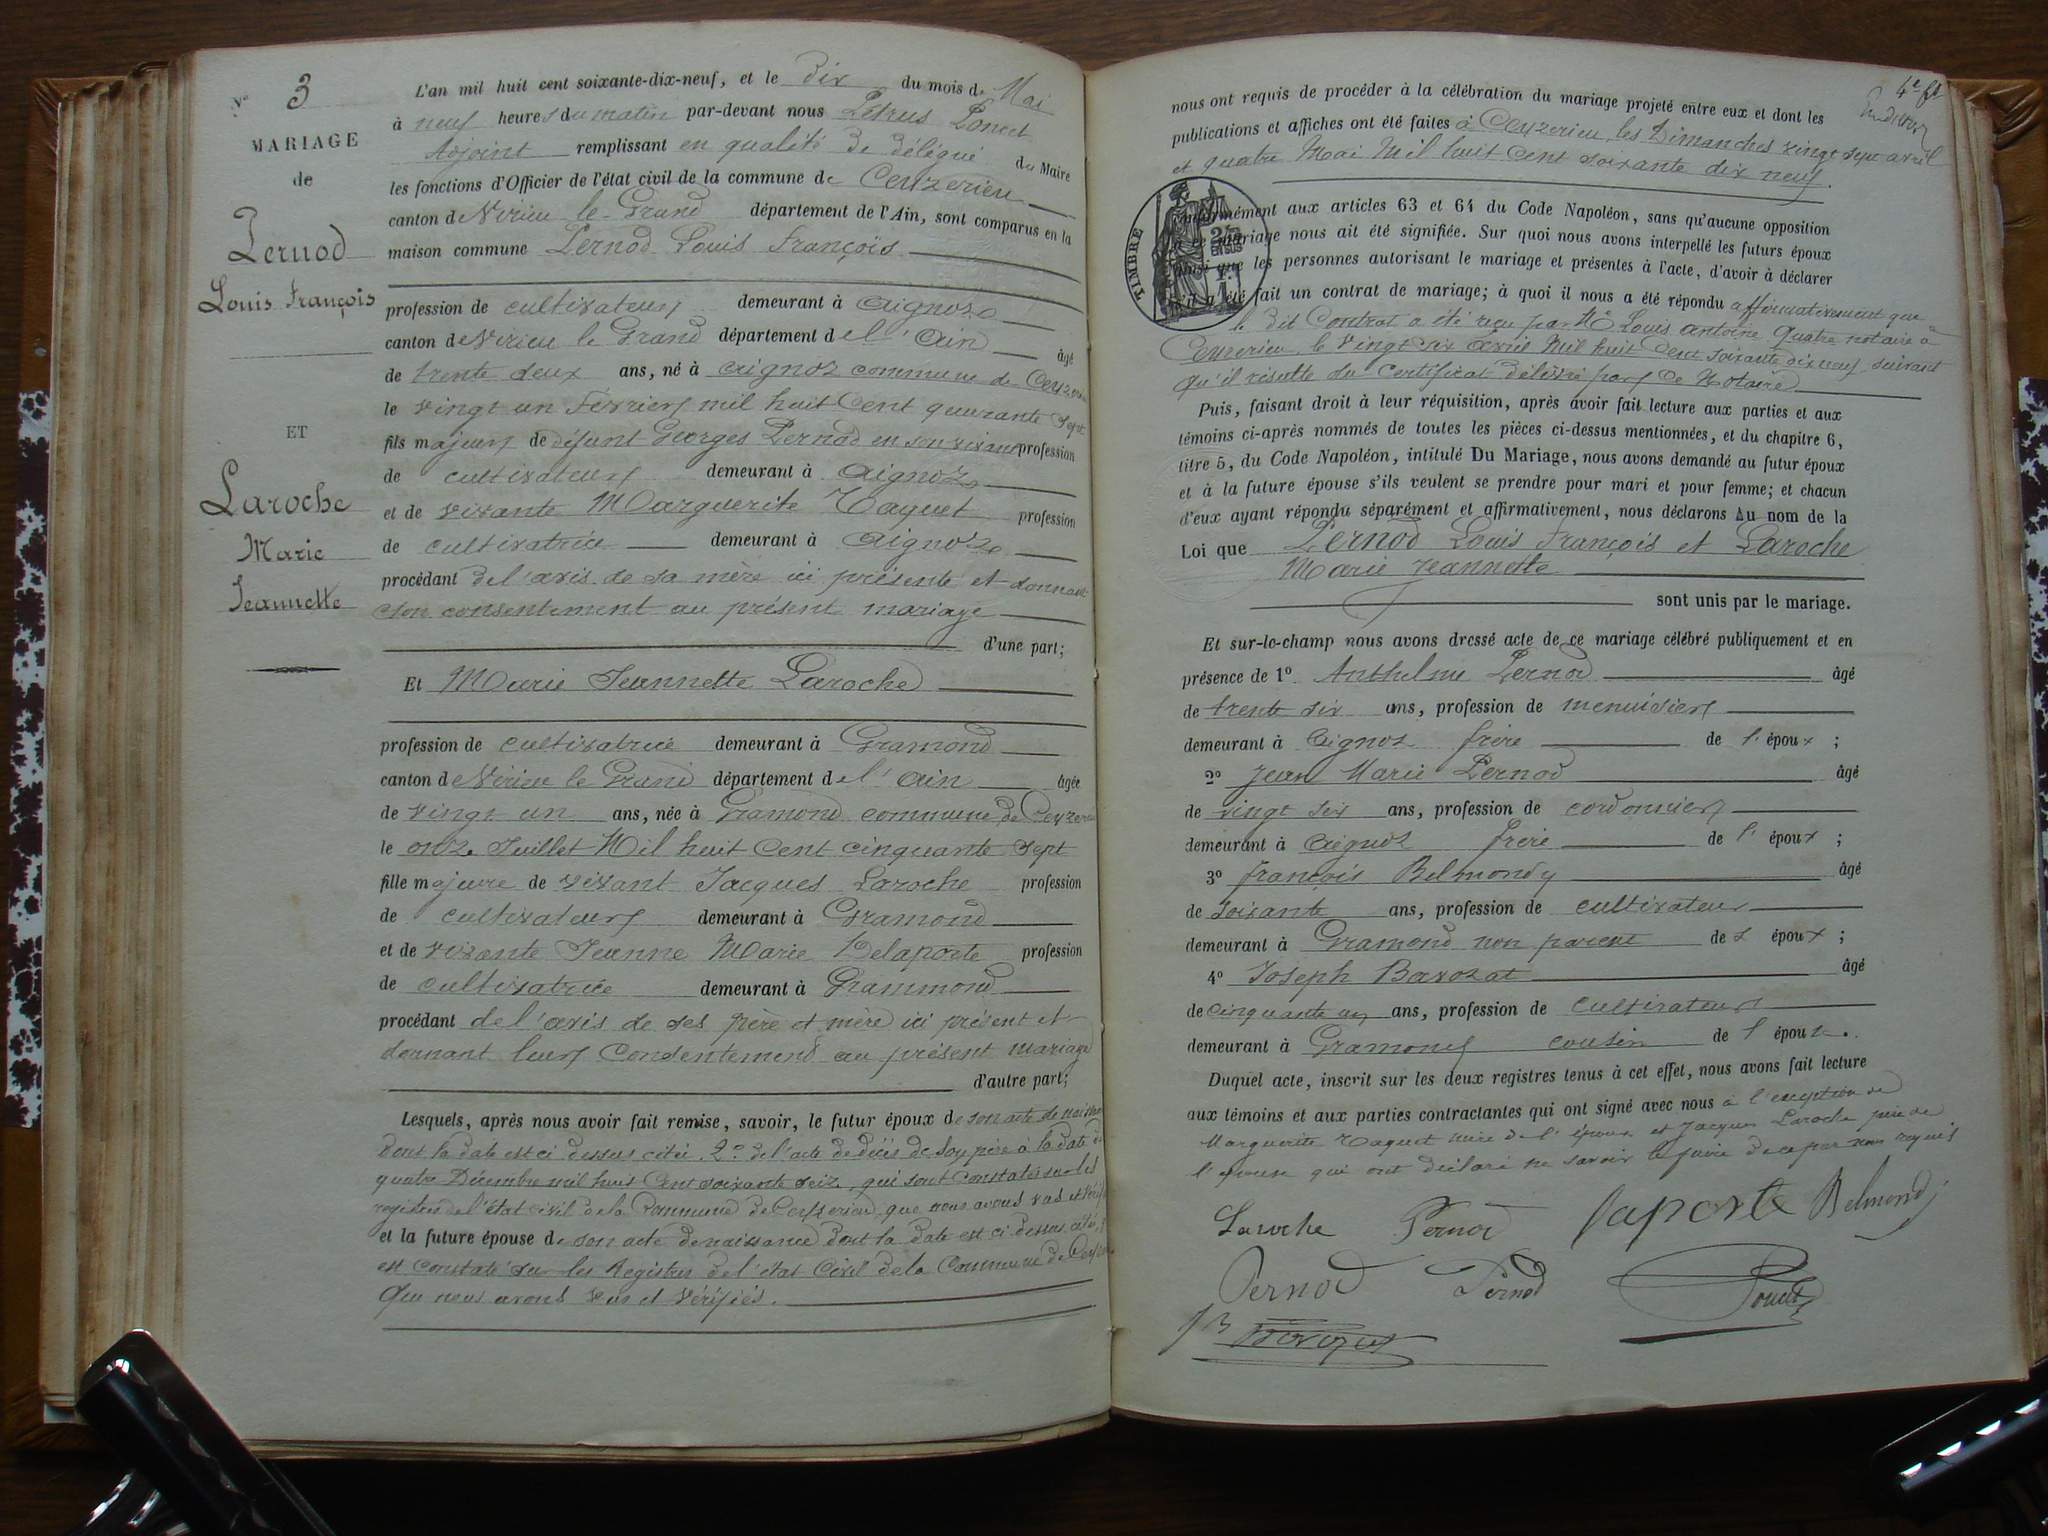 N° 3
MARIAGE
de
Pernod
Louis François
ET
Laroche
Marie
Jeannette
L'an mil huit cent soixante-dix-neuf, et le dix du mois de Mai
à neuf heures du matin par-devant nous Pétrus Poncet
Adjoint remplissant en qualité de délégué du Maire
les fonctions d'Officier de l'état civil de la commune de Ceyzerieu
canton de Virieu le Grand département de l'Ain, sont comparus en la
maison commune Pernod Louis François
profession de cultivateur demeurant à Aignoz
canton de Virieu le Grand département de l'Ain âgé
de trente deux ans, né à Aignoz commune de Ceyzerieu
le vingt un Février mil huit Cent quarante sept
fils majeur de défunt Georges Pernod en son vivant profession
de cultivateur demeurant à Aignoz
et de vivante Marguerite Taquet profession
de cultivatrice demeurant à Aignoz
procédant de l'avis de sa mère ici présente et donnant
son consentement au présent mariage
d'une part;
Et Marie Jeannette Laroche
profession de cultivatrice demeurant à Gramond
canton de Virieu le Grand département de l'Ain âgée
de vingt un ans, née à Gramond commune de Ceyzerieu
le onze Juillet Mil huit Cent cinquante sept
fille majeure de vivant Jacques Laroche profession
de cultivateur demeurant à Gramond
et de vivante Jeanne Marie Delaporte profession
de cultivatrice demeurant à Grammond
procédant de l'avis de ses père et mère ici présent et
donnant leur Consentement au présent mariage
d'autre part;
Lesquels, après nous avoir fait remise, savoir, le futur époux de son acte de naissance
dont la date est ci dessus citée. 2° de l'acte de décès de son père à la date du
quatre Décembre mil huit Cent soixante seize, qui sont constatés sur les
registres de l'état civil de la Commune de Ceyzerieu que nous avons vus et vérifiés
et la future épouse de son acte de naissance dont la date est ci dessus citée,
est constaté sur les Registres de l'état Civil de la Commune de Ceyzerieu
que nous avons vus et vérifiés.
4e ft
nous ont requis de procéder à la célébration du mariage projeté entre eux et dont les
publications et affiches ont été faites à Ceyzerieu les Dimanches vingt sept avril
et quatre Mai Mil huit Cent soixante dix neuf.
TIMBRE
conformément aux articles 63 et 64 du Code Napoléon, sans qu'aucune opposition
à ce mariage nous ait été signifiée. Sur quoi nous avons interpellé les futurs époux
ainsi que les personnes autorisant le mariage et présentes à l'acte, d'avoir à déclarer
s'il a été fait un contrat de mariage; à quoi il nous a été répondu affirmativement que
le dit Contrat a été reçu par Me Louis Antoine Quatre notaire à
Ceyzerieu le vingt six avril Mil huit Cent soixante dix neuf suivant
qu'il résulte du Certificat délivré par ce Notaire
Puis, faisant droit à leur réquisition, après avoir fait lecture aux parties et aux
témoins ci-après nommés de toutes les pièces ci-dessus mentionnées, et du chapitre 6,
titre 5, du Code Napoléon, intitulé Du Mariage, nous avons demandé au futur époux
et à la future épouse s'ils veulent se prendre pour mari et pour femme; et chacun
d'eux ayant répondu séparément et affirmativement, nous déclarons Au nom de la
Loi que Pernod Louis François et Laroche
Marie Jeannette
sont unis par le mariage.
Et sur-le-champ nous avons dressé acte de ce mariage célébré publiquement et en
présence de 1° Anthelme Pernod âgé
de trente six ans, profession de menuisier
demeurant à Aignoz frère de l'époux;
2° Jean Marie Pernod âgé
de vingt six ans, profession de cordonnier
demeurant à Aignoz frère de l'époux;
3° François Belmondy âgé
de soixante ans, profession de cultivateur
demeurant à Gramond non parent des époux;
4° Joseph Bavozat âgé
de cinquante un ans, profession de cultivateur
demeurant à Gramond cousin de l'époux.
Duquel acte, inscrit sur les deux registres tenus à cet effet, nous avons fait lecture
aux témoins et aux parties contractantes qui ont signé avec nous à l'exception de
Marguerite Taquet mère de l'époux et Jacques Laroche père de
l'épouse qui ont déclaré ne savoir le faire de ce par nous requis
Laroche Pernod Laporte Belmondy
Pernod Pernod Poncet